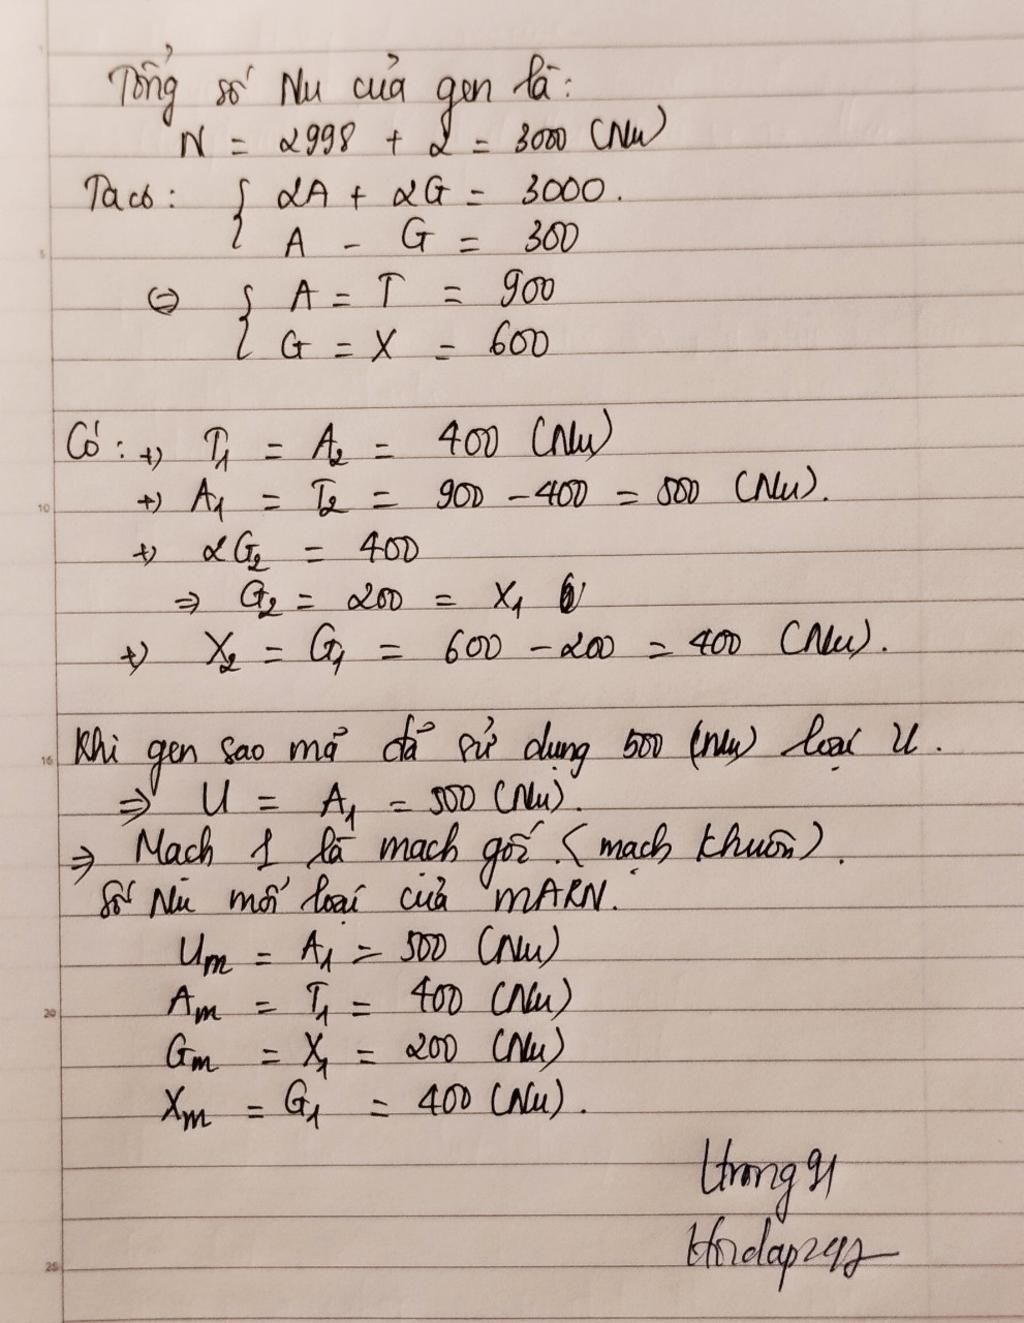 Tổng số Nu của gen là:
N = 2998 + 2 = 3000 (Nu)
Ta có: { 2A + 2G = 3000.
A - G = 300
⇔ { A = T = 900
G = X = 600
Có: +) T1 = A2 = 400 (Nu)
+) A1 = T2 = 900 - 400 = 500 (Nu).
+) 2G2 = 400
⇒ G2 = 200 = X1
+) X2 = G1 = 600 - 200 = 400 (Nu).
Khi gen sao mã đã sử dụng 500 (nu) loại U.
⇒ U = A1 = 500 (Nu).
⇒ Mạch 1 là mạch gốc (mạch khuôn).
Số Nu mỗi loại của mARN.
Um = A1 = 500 (Nu)
Am = T1 = 400 (Nu)
Gm = X1 = 200 (Nu)
Xm = G1 = 400 (Nu).
5
10
15
20
25